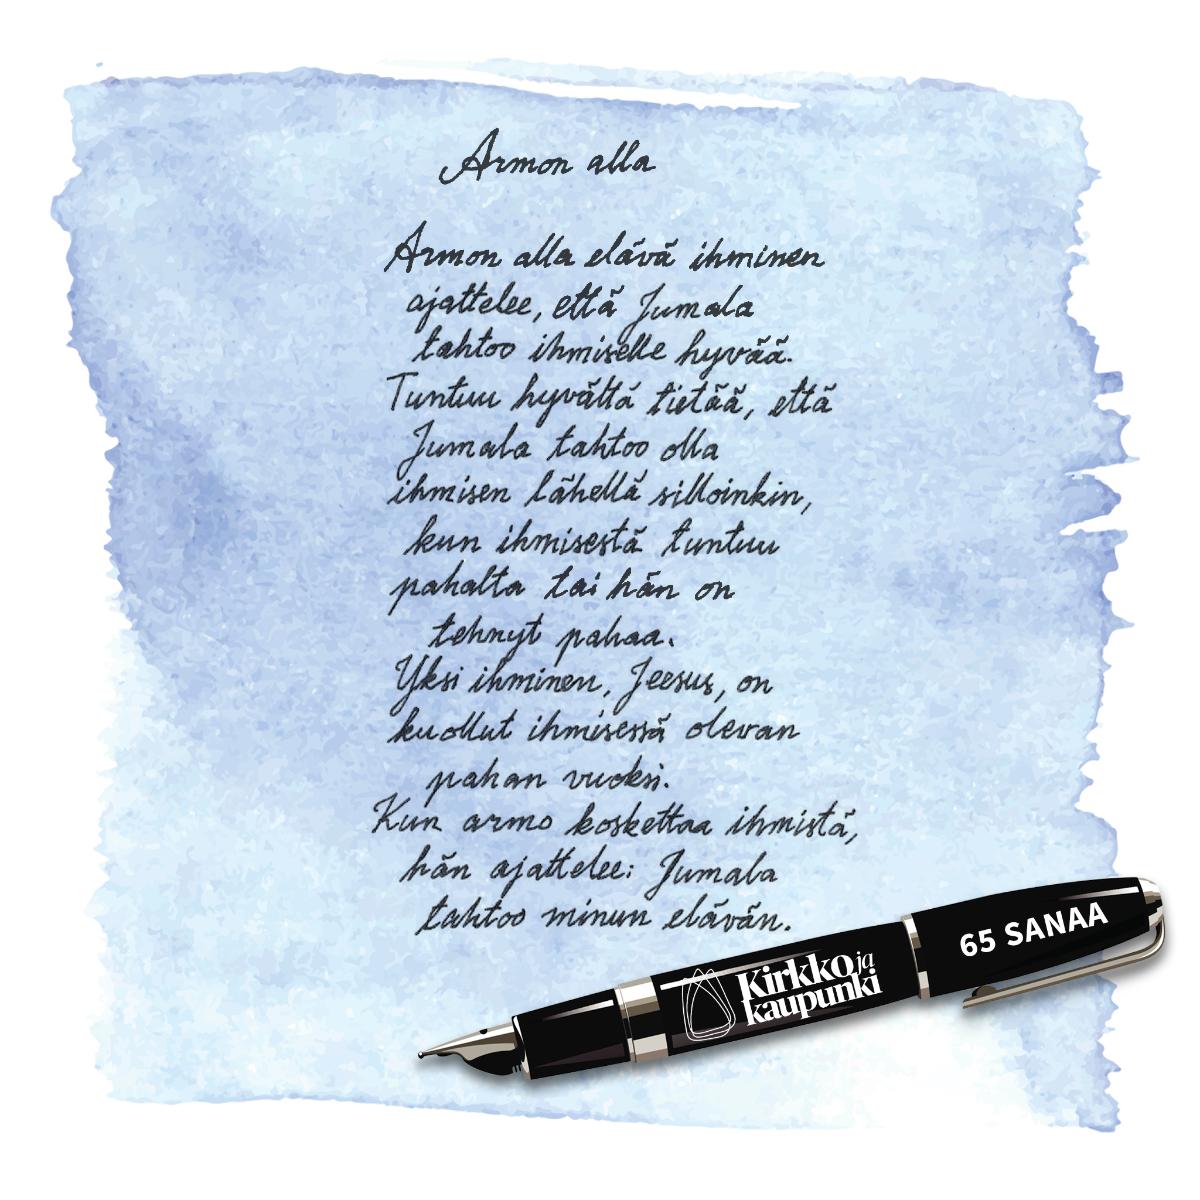 Armon alla
Armon alla elävä ihminen
ajattelee, että Jumala
tahtoo ihmiselle hyvää.
Tuntuu hyvältä tietää, että
Jumala tahtoo olla
ihmisen lähellä silloinkin,
kun ihmisestä tuntuu
pahalta tai hän on
tehnyt pahaa.
Yksi ihminen, Jeesus, on
kuollut ihmisessä olevan
pahan vuoksi.
Kun armo koskettaa ihmistä,
hän ajattelee: Jumala
tahtoo minun elävän.
65 SANAA
Kirkko ja
kaupunki